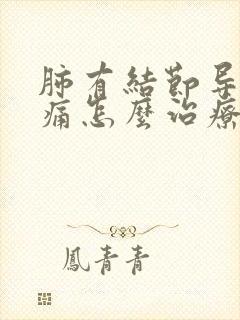 肺有結節导
痛怎麼治療
鳳青青